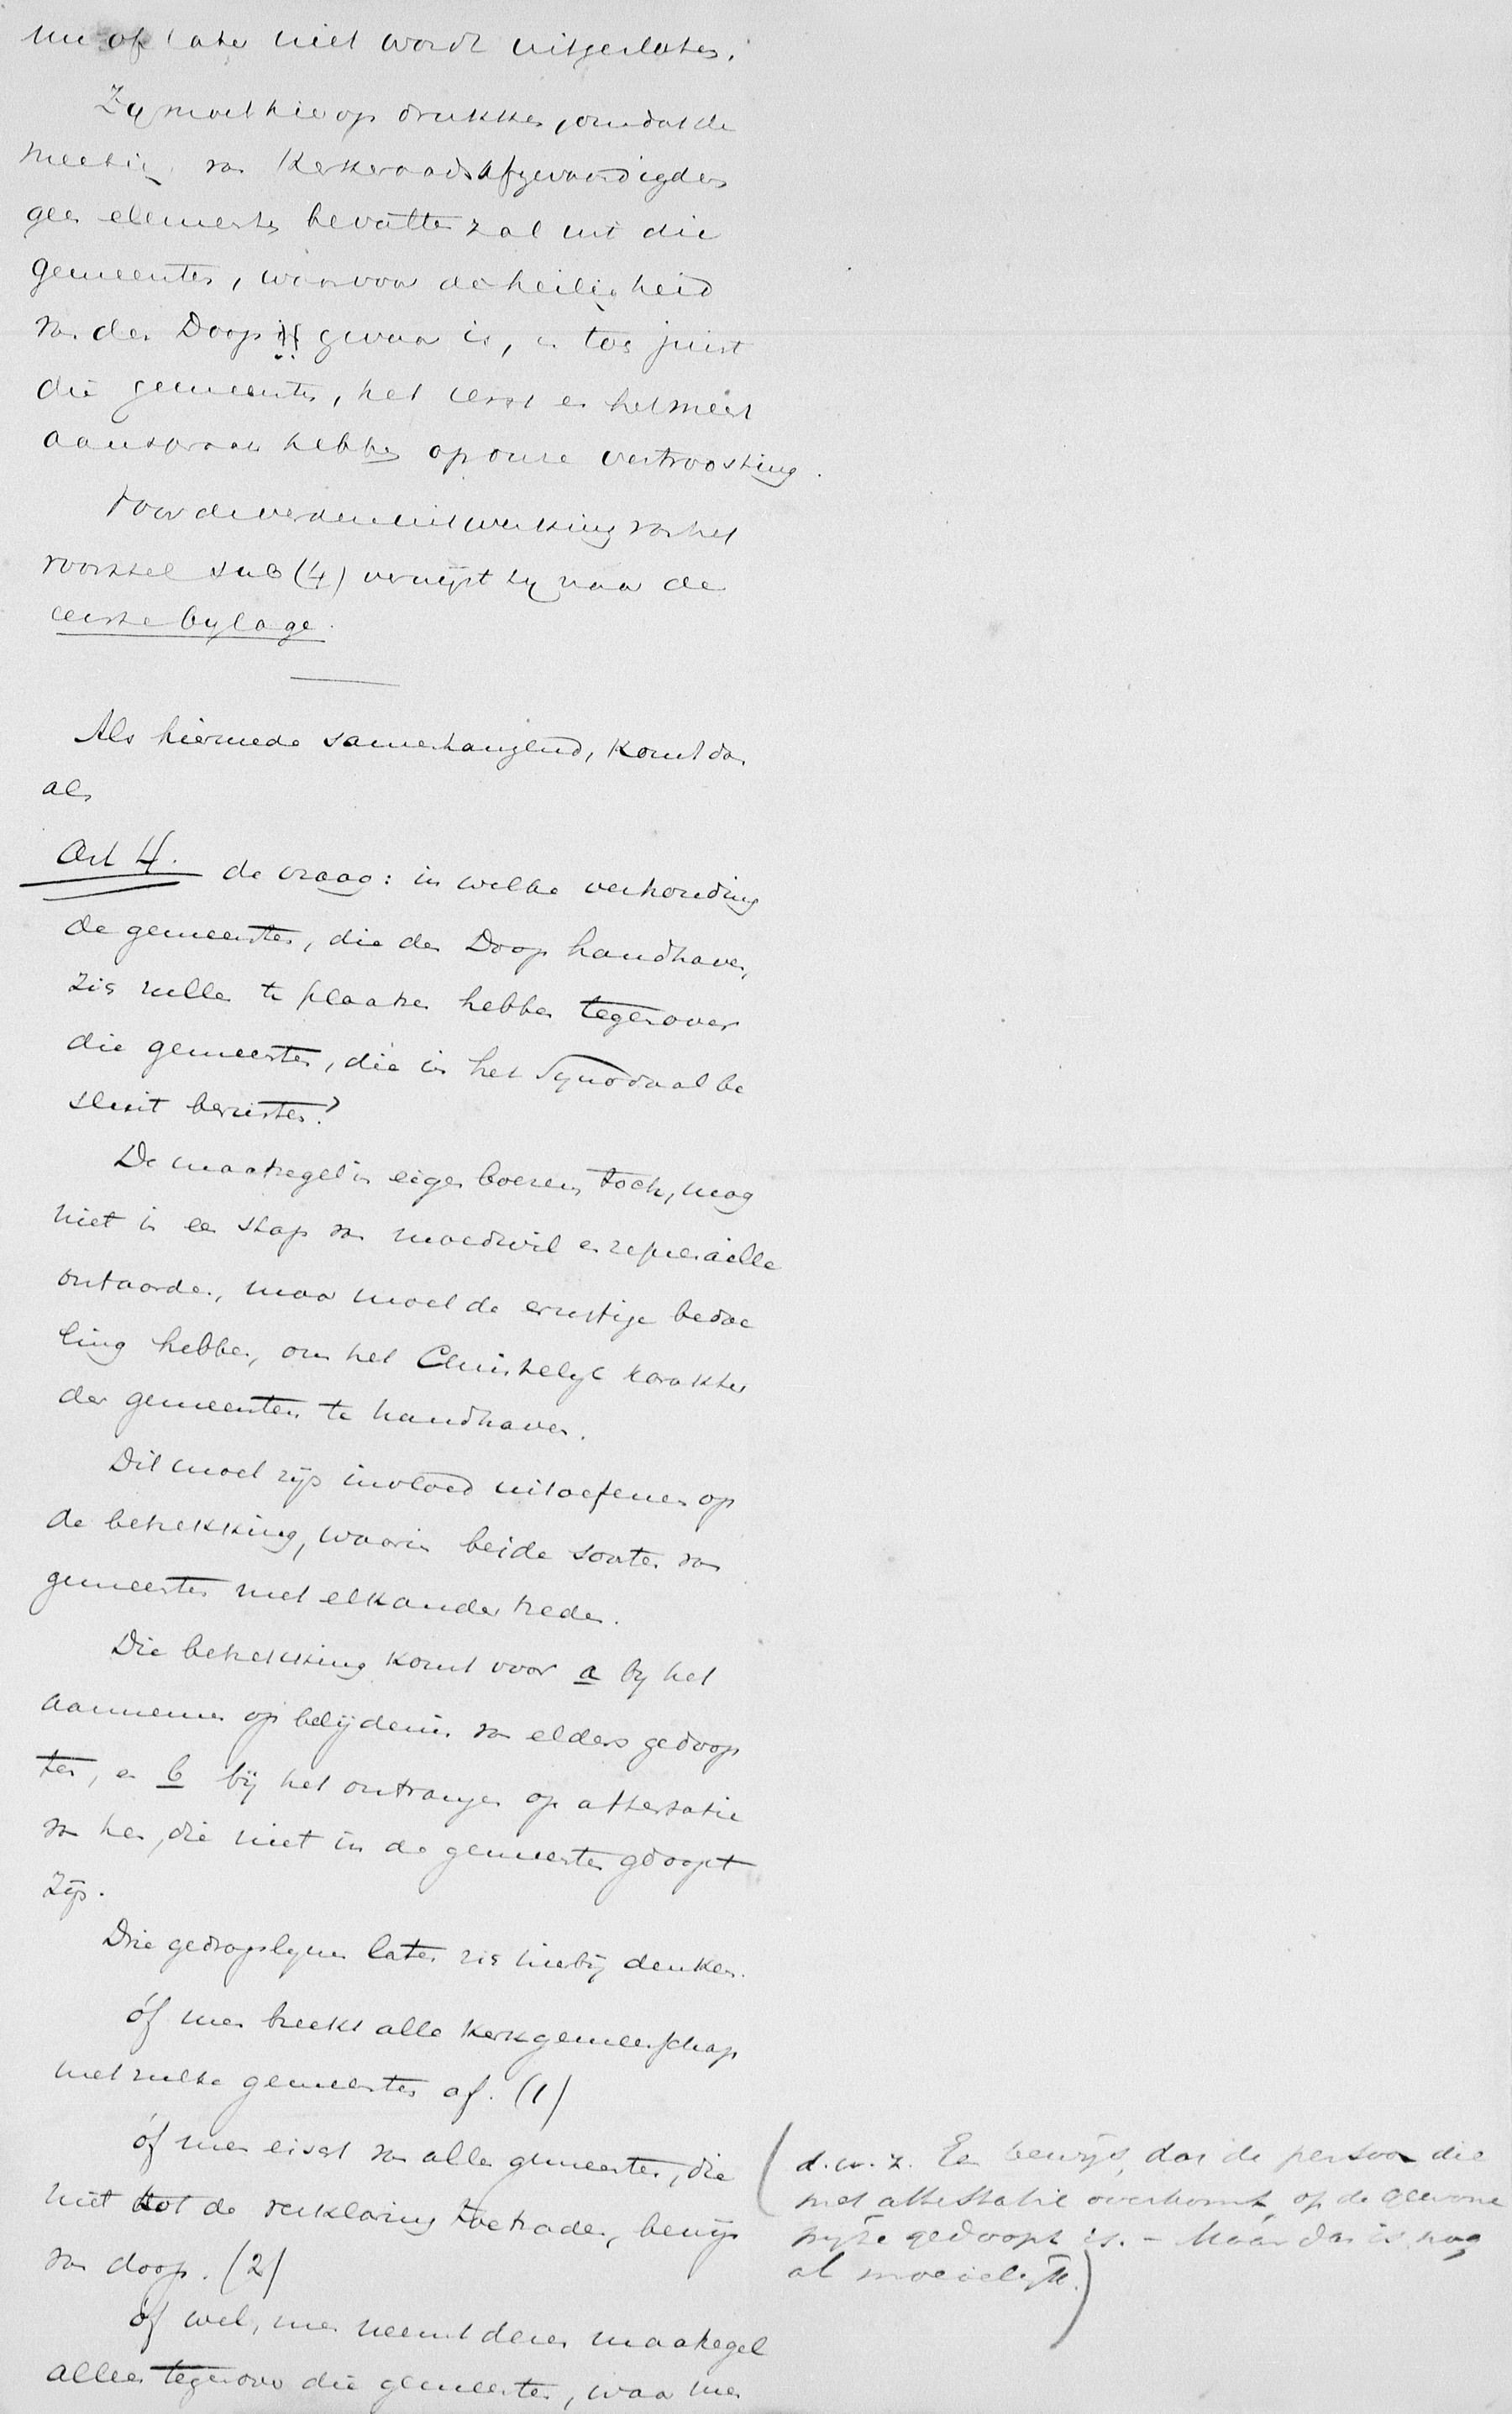 nu of later niet wordt uitgesloten.
Zij moet hierop drukken, omdat de
meeting van Kerkeraadsafgevaardigden
geen elementen bevatten zal uit die
gemeenten, waarvoor de heiligheid
van den Doop in gevaar is, en toch juist
die gemeenten, het eerst en het meest
aanspraak hebben op onze vertroosting.
Voor de verdere uitwerking van het
voorstel sub (4) verwijst zij naar de
eerste bylage.
Als hiermede samenhangend, komt dan
als
Art 4. de vraag: in welke verhouding
de gemeenten, die den Doop handhaven,
zich zullen te plaatsen hebben tegenover
die gemeenten, die in het Synodaal be
sluit berusten?
De maatregel in eigen boezem toch, mag
niet in een stap van moedwil en represaille
ontaarden, maar moet de ernstige bedoe
ling hebben, om het Christelyk karakter
der gemeenten te handhaven.
Dit moet zijn invloed uitoefenen op
de betrekking, waarin beide soorten van
gemeenten met elkander treden.
Die betrekking komt voor a by het
aannemen op belijdenis van elders gedoop
ten, en b bij het ontvangen op attestatie
van hen, die niet in de gemeente gedoopt
zijn.
Drie gedragslynen laten zich hierbij denken.
óf men breekt alle Kerkgemeenschap
met zulke gemeenten af. (1)
óf men eischt van alle gemeenten, die
niet tot de verklaring toetraden, bewijs
van doop. (2)
óf wel, men neemt dezen maatregel
alleen tegenover die gemeenten, waar men
(d.w.z. Een bewijs, dat de persoon die
met attestatie overkomt, op de gewone
wijze gedoopt is. – Maar dat is nog
al moeielijk.)